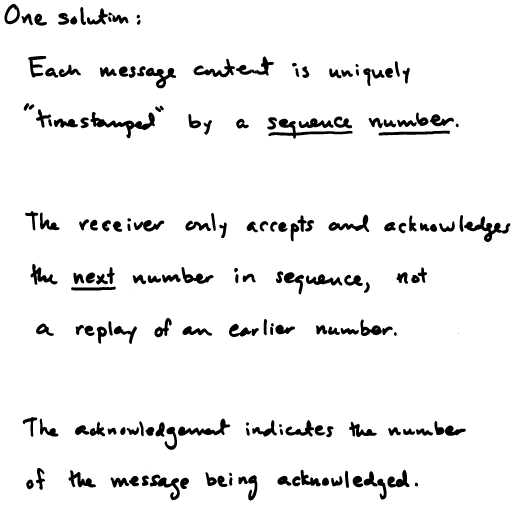 One solution:
Each message content is uniquely
"timestamped" by a sequence number.
The receiver only accepts and acknowledges
the next number in sequence, not
a replay of an earlier number.
The acknowledgement indicates the number
of the message being acknowledged.